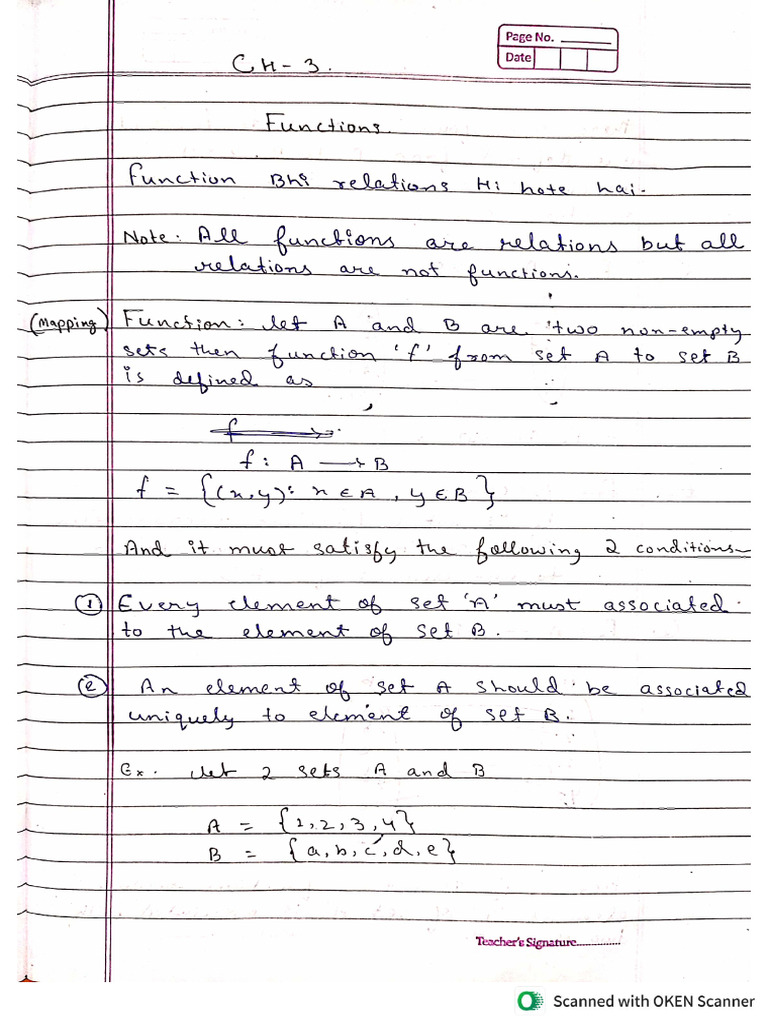 Page No.
Date
CH-3.
Functions.
Function Bhi relations Hi hote hai.
Note: All functions are relations but all
relations are not functions.
(Mapping) Function: let A and B are two non-empty
sets then function 'f' from set A to set B
is defined as
f
f: A → B
f = {(x,y): x ∈ A, y ∈ B}
And it must satisfy the following 2 conditions-
① Every element of set 'A' must associated
to the element of set B.
② An element of set A should be associated
uniquely to element of set B.
Ex. let 2 sets A and B
A = {1,2,3,4}
B = {a,b,c,d,e}
Teacher's Signature...............
Scanned with OKEN Scanner